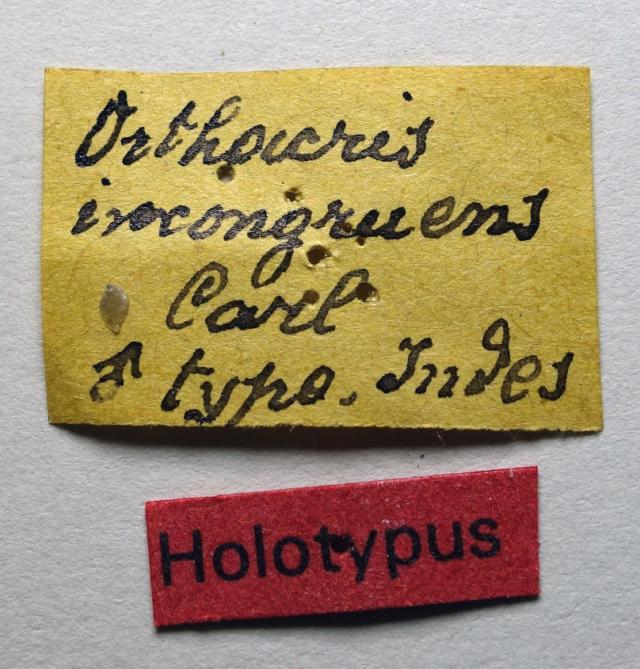 Orthacris
incongruens
Carl
♂ type. Indes
Holotypus